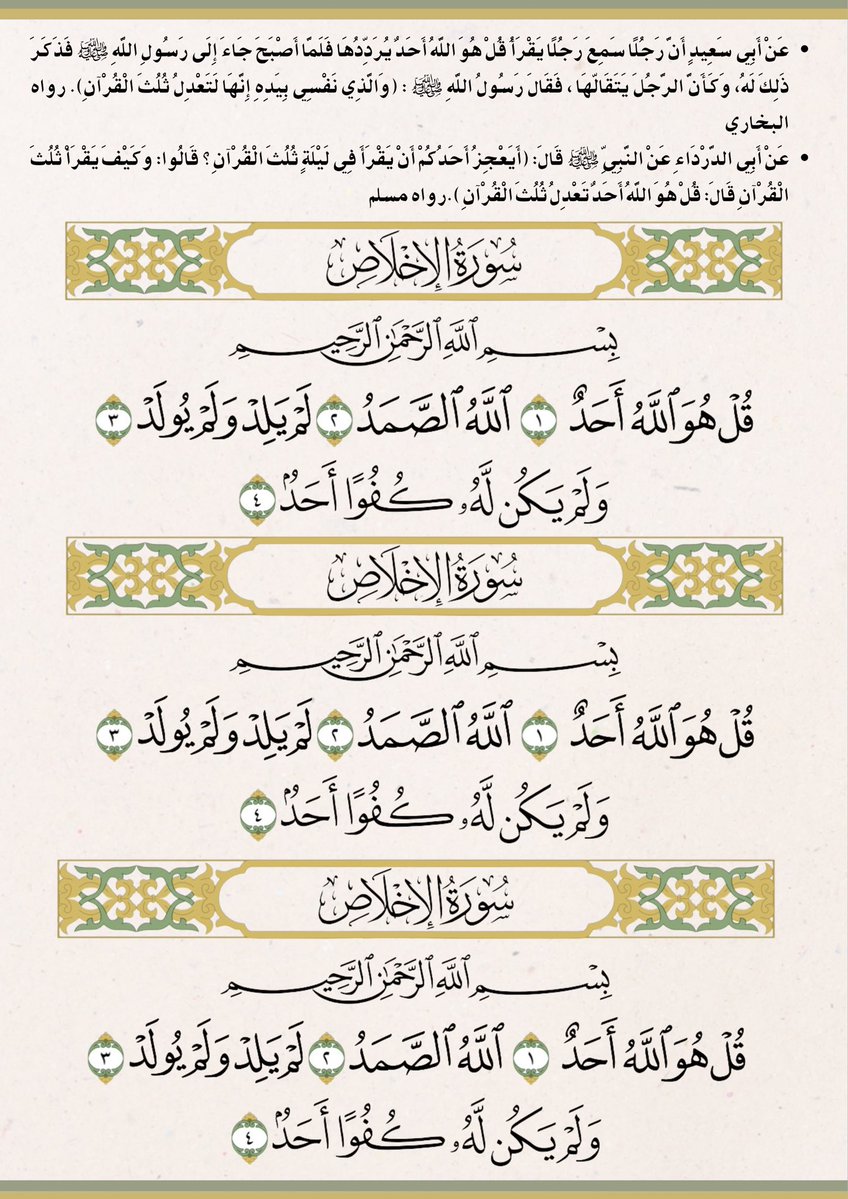 • عَنْ أَبِي سَعِيدٍ أَنَّ رَجُلًا سَمِعَ رَجُلًا يَقْرَأُ قُلْ هُوَ اللَّهُ أَحَدٌ يُرَدِّدُهَا فَلَمَّا أَصْبَحَ جَاءَ إِلَى رَسُولِ اللَّهِ ﷺ فَذَكَرَ
ذَلِكَ لَهُ، وَكَأَنَّ الرَّجُلَ يَتَقَالّهَا ، فَقَالَ رَسُولُ اللَّهِ ﷺ : (وَالَّذِي نَفْسِي بِيَدِهِ إِنَّهَا لَتَعْدِلُ ثُلُثَ الْقُرْآنِ). رواه
البخاري
• عَنْ أَبِي الدَّرْدَاءِ عَنْ النَّبِيِّ ﷺ قَالَ: (أَيَعْجِزُ أَحَدُكُمْ أَنْ يَقْرَأَ فِي لَيْلَةٍ ثُلُثَ الْقُرْآنِ؟ قَالُوا: وَكَيْفَ يَقْرَأْ ثُلُثَ
الْقُرْآنِ قَالَ: قُلْ هُوَ اللَّهُ أَحَدٌ تَعْدِلُ ثُلُثَ الْقُرْآنِ).رواه مسلم
سُورَةُ الإِخْلَاصِ
بِسْمِ ٱللَّهِ ٱلرَّحْمَٰنِ ٱلرَّحِيمِ
قُلْ هُوَ ٱللَّهُ أَحَدٌ ١ ٱللَّهُ ٱلصَّمَدُ ٢ لَمْ يَلِدْ وَلَمْ يُولَدْ ٣
وَلَمْ يَكُن لَّهُۥ كُفُوًا أَحَدٌۢ ٤
سُورَةُ الإِخْلَاصِ
بِسْمِ ٱللَّهِ ٱلرَّحْمَٰنِ ٱلرَّحِيمِ
قُلْ هُوَ ٱللَّهُ أَحَدٌ ١ ٱللَّهُ ٱلصَّمَدُ ٢ لَمْ يَلِدْ وَلَمْ يُولَدْ ٣
وَلَمْ يَكُن لَّهُۥ كُفُوًا أَحَدٌۢ ٤
سُورَةُ الإِخْلَاصِ
بِسْمِ ٱللَّهِ ٱلرَّحْمَٰنِ ٱلرَّحِيمِ
قُلْ هُوَ ٱللَّهُ أَحَدٌ ١ ٱللَّهُ ٱلصَّمَدُ ٢ لَمْ يَلِدْ وَلَمْ يُولَدْ ٣
وَلَمْ يَكُن لَّهُۥ كُفُوًا أَحَدٌۢ ٤